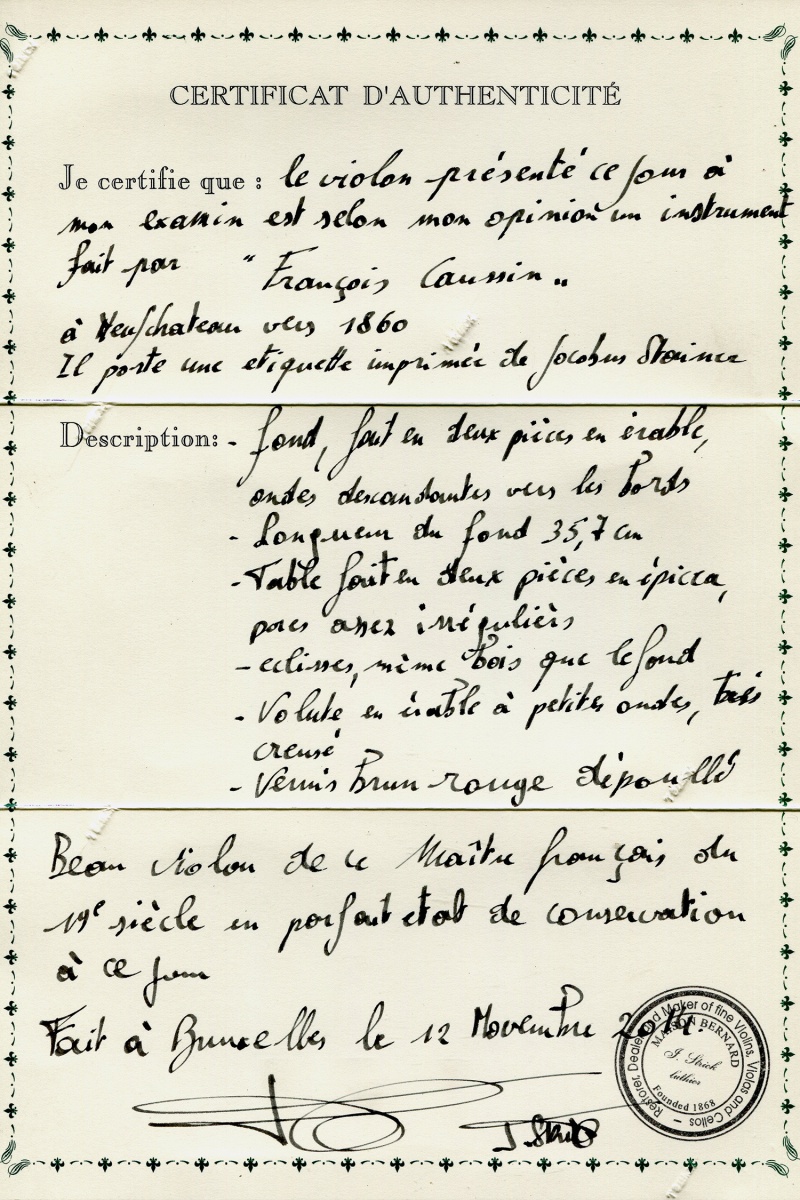 CERTIFICAT D'AUTHENTICITÉ
Je certifie que : le violon présenté ce jour à
mon examin est selon mon opinion un instrument
fait par " François Caussin "
à Neufchateau vers 1860
Il porte une etiquette imprimée de Jacobus Stainer
Description: - fond, fait en deux pièces en érable,
ondes descandantes vers les bords
- Longueur du fond 35,7 cm
- Table fait en deux pièces en épicea,
pores assez irréguliérs
- eclisses, même bois que le fond
- Volute en érable à petites ondes, très
creusé
- Vernis brun-rouge dépouillé
Beau violon de ce Maître français du
19e siècle en parfait etat de conservation
à ce jour
Fait à Bruxelles le 12 Novembre 2014.
J. Strick
Restorer, Dealer and Maker of fine Violins, Violas and Cellos
MAISON BERNARD
J. Strick
luthier
Founded 1868